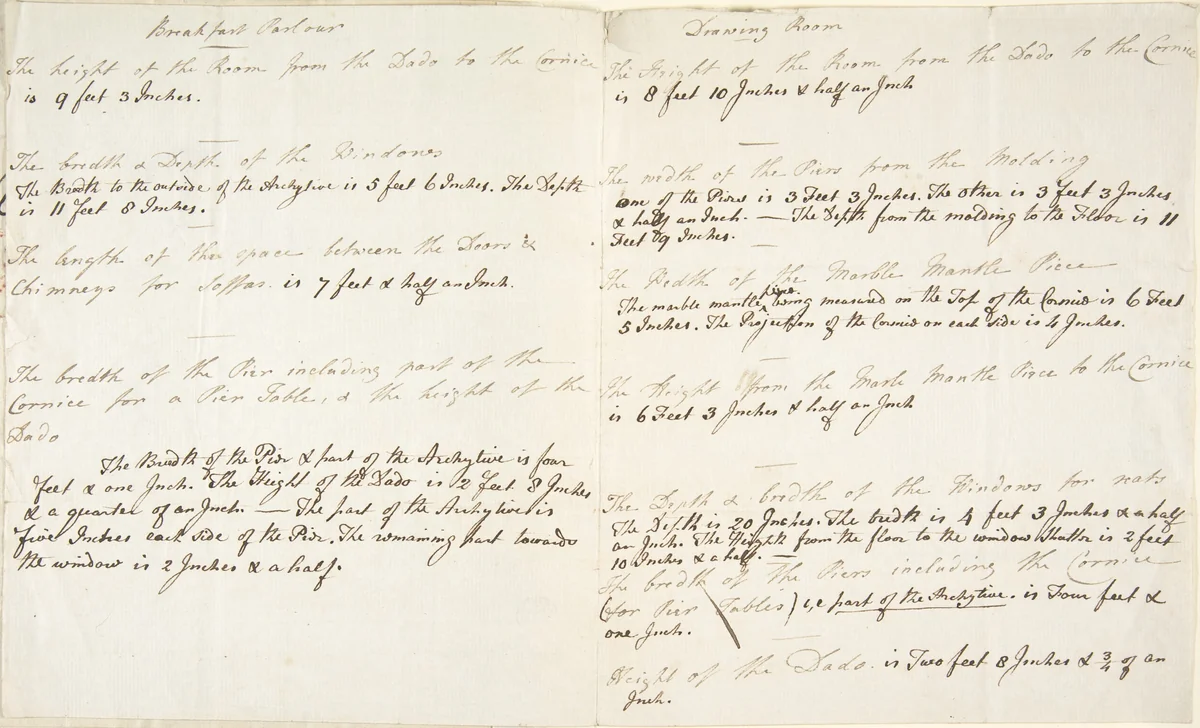 Breakfast Parlour
The height of the Room from the Dado to the Cornice
is 9 feet 3 Inches.
The bredth & Depth of the Windows
The Bredth to the outside of the Archytive is 5 feet 6 Inches. The Depth
is 11 feet 8 Inches.
The length of the space between the Doors &
Chimneys for Soffas. is 7 feet & half an Inch.
The breadth of the Pier including part of the
Cornice for a Pier Table, & the height of the
Dado
The Bredth of the Pier & part of the Archytive is four
feet & one Inch. The Height of the Dado is 2 feet 8 Inches
& a quarter of an Inch. — The part of the Archytive is
five Inches each side of the Pier. The remaining part towards
the window is 2 Inches & a half.
Drawing Room
The Height of the Room from the Dado to the Cornice
is 8 feet 10 Inches & half an Inch
The width of the Piers from the Molding
one of the Piers is 3 Feet 3 Inches. The Other is 3 feet 3 Inches
& half an Inch. — The Depth from the molding to the Floor is 11
Feet 9 Inches.
The Bedth of the Marble Mantle Piece
The marble mantle piece being measured on the Top of the Cornice is 6 Feet
5 Inches. The Projection of the Cornice on each side is 4 Inches.
The Height from the Marle Mantle Piece to the Cornice
is 6 Feet 3 Inches & half an Inch
The Depth & bredth of the Windows for seats
The Depth is 20 Inches. The bredth is 4 feet 3 Inches & a half
an Inch. The Height from the floor to the window Shutter is 2 feet
10 Inches & a half. —
The breadth of the Piers including the Cornice
(for Pier Tables) i,e part of the Archytive. is Four feet &
one Inch.
Height of the Dado. is Two feet 8 Inches & 3/4 of an
Inch.